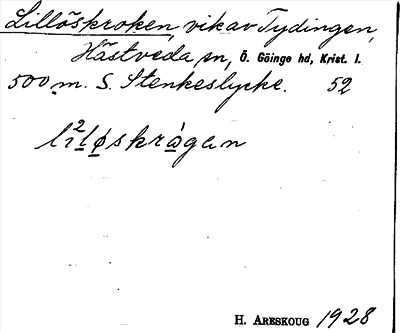 Lillöskroken, vik av Tydingen,
Hästveda sn, Ö. Göinge hd, Krist. l.
500 m. S. Stenkeslycke. 52
li²løskràgan
H. Areskoug 1928